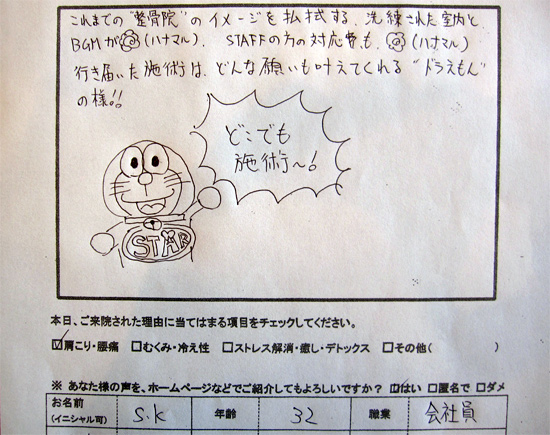 これまでの"整骨院"のイメージを払拭する、洗練された室内と
BGMが(ハナマル)、STAFFの方の対応費も、(ハナマル)
行き届いた施術は、どんな願いも叶えてくれる"ドラえもん"
の様!!
どこでも
施術〜!
STAR
本日、ご来院された理由に当てはまる項目をチェックしてください。
☑肩こり・腰痛 □むくみ・冷え性 □ストレス解消・癒し・デトックス □その他( )
※ あなた様の声を、ホームページなどでご紹介してもよろしいですか? ☑はい □匿名で □ダメ
お名前 S.K 年齢 32 職業 会社員
(イニシャル可)